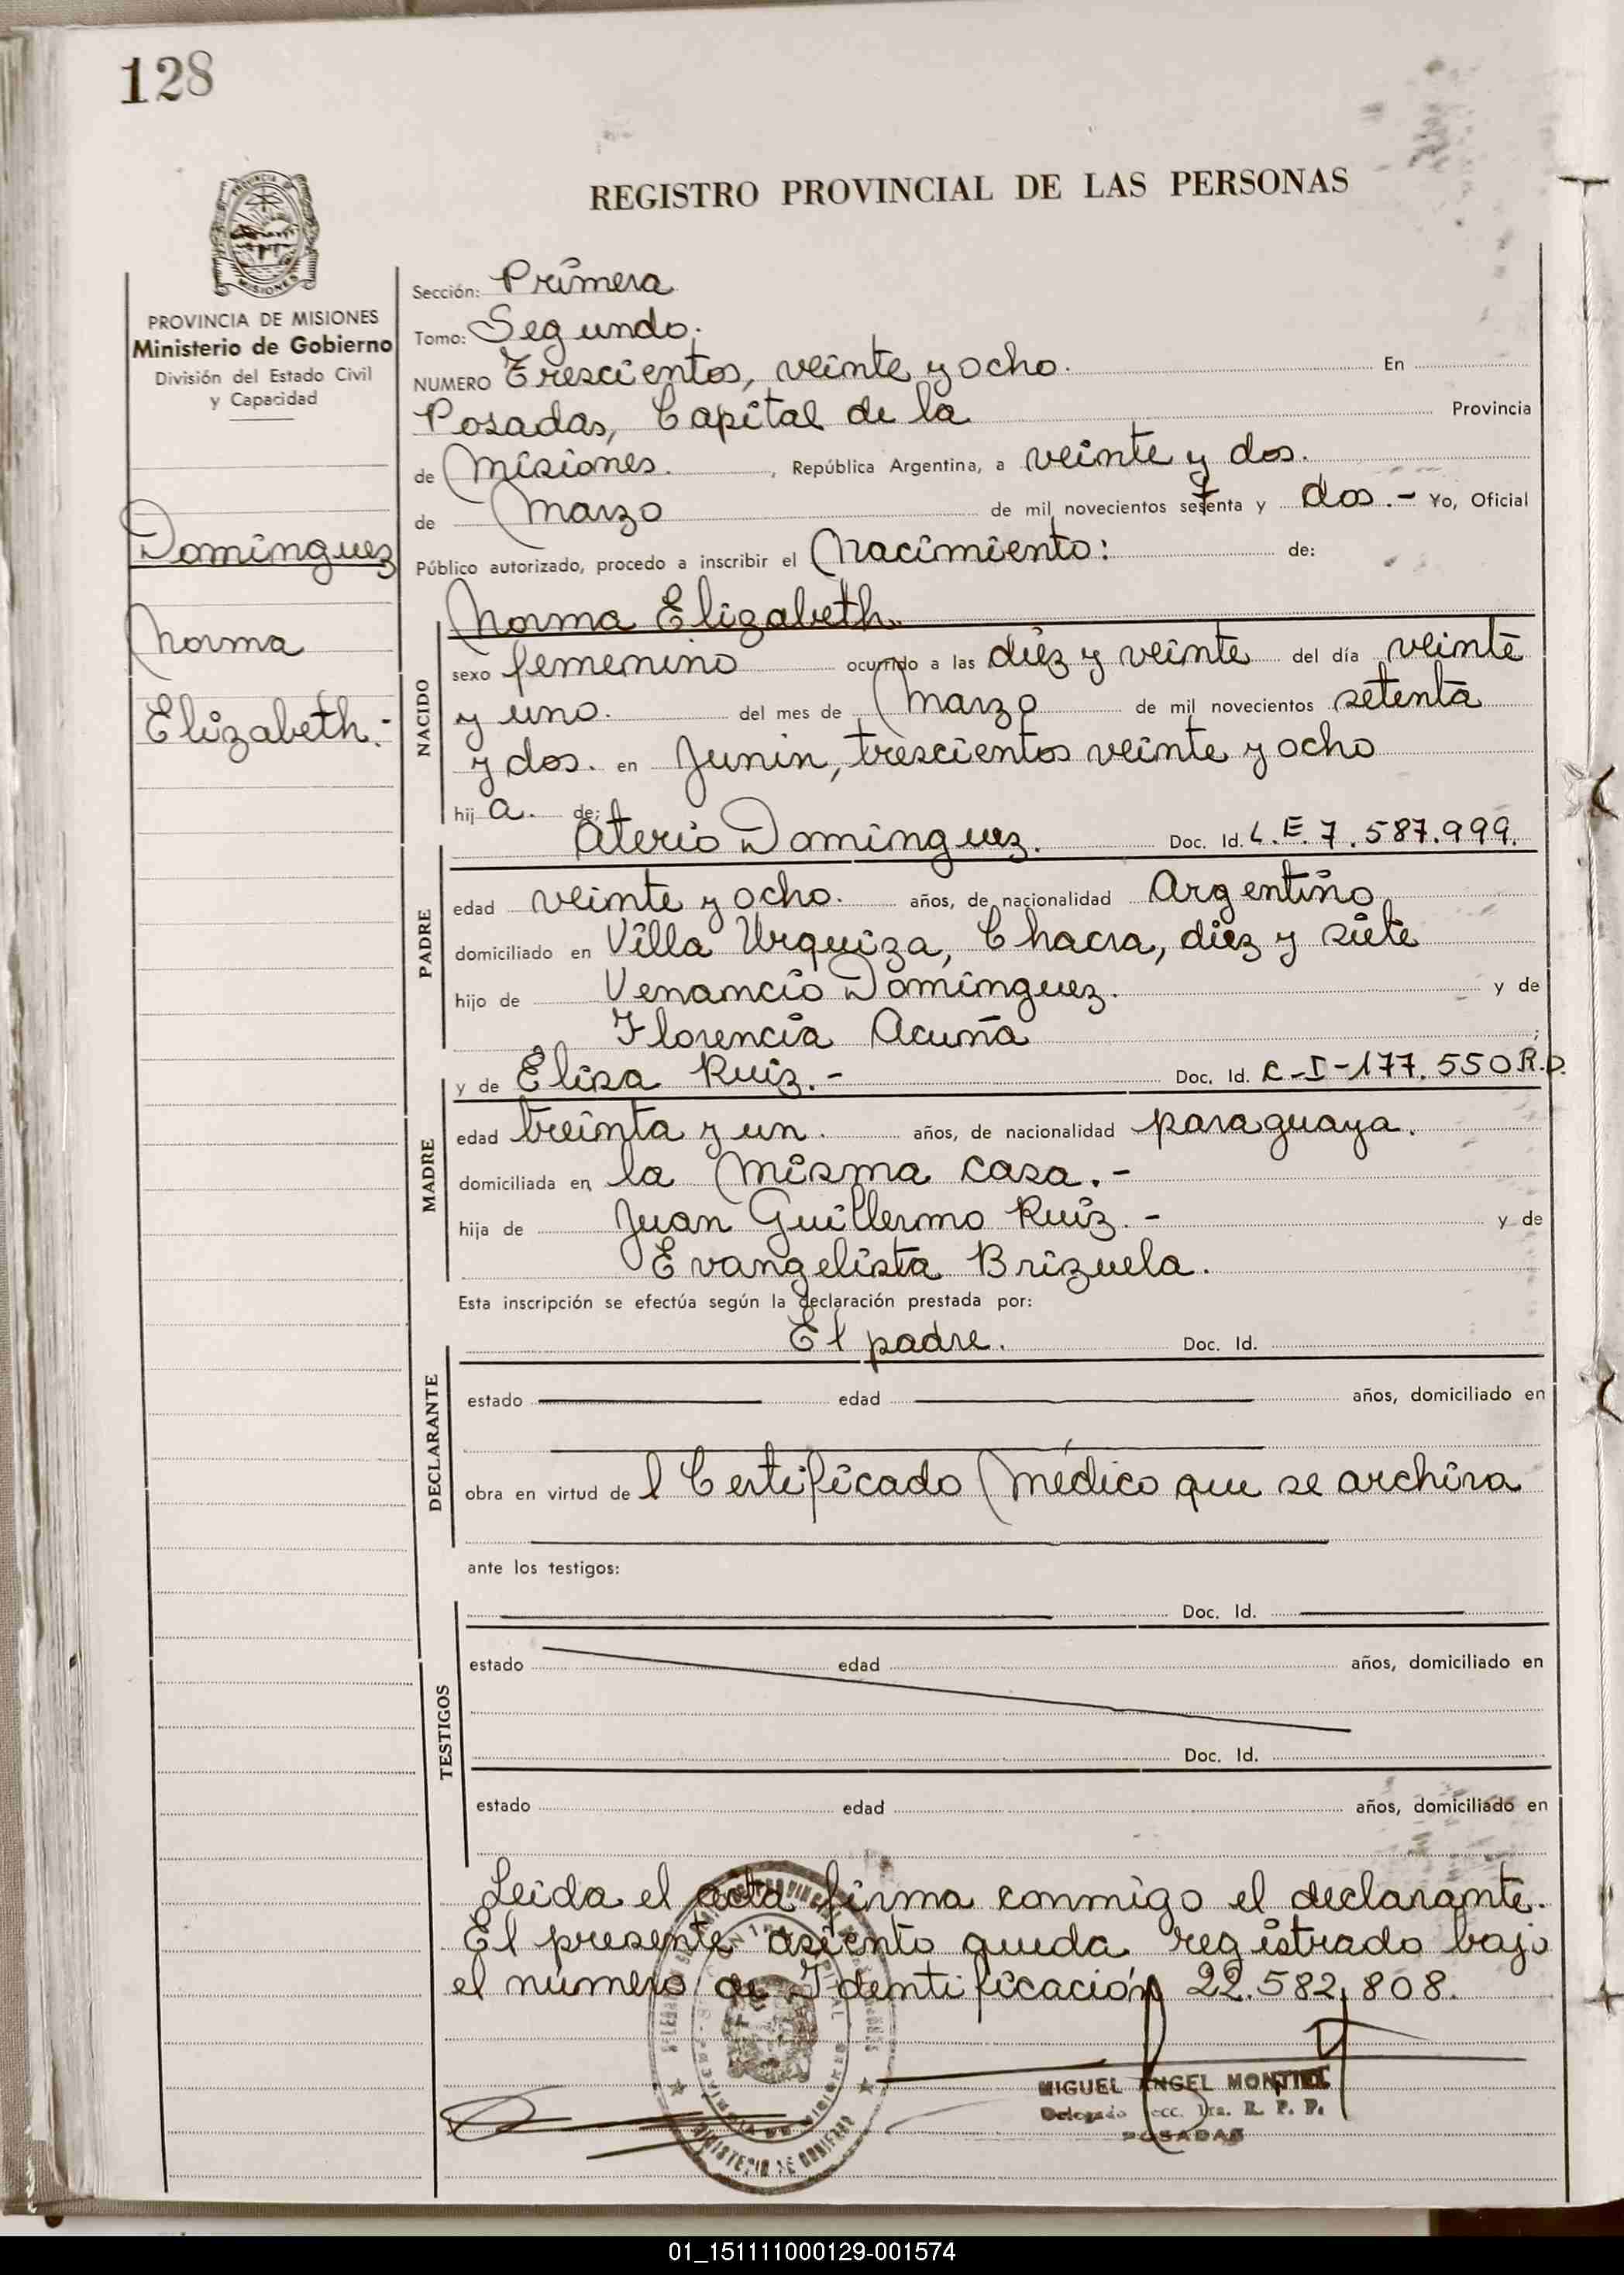 128
REGISTRO PROVINCIAL DE LAS PERSONAS
PROVINCIA DE MISIONES
Ministerio de Gobierno
División del Estado Civil
y Capacidad
Dominguez
Norma
Elizabeth.-
Sección: Primera
Tomo: Segundo.
NUMERO Trescientos, veinte y ocho. En
Posadas, Capital de la Provincia
de Misiones. , República Argentina, a veinte y dos.
de Marzo de mil novecientos setenta y dos.- Yo, Oficial
Público autorizado, procedo a inscribir el Nacimiento: de:
Norma Elizabeth.
NACIDO
sexo femenino ocurrido a las diez y veinte del día veinte
y uno. del mes de Marzo de mil novecientos setenta
y dos. en Junin, trescientos veinte y ocho
hij a. de:
Aterio Dominguez. Doc. Id. L.E. 7.587.999.
PADRE
edad veinte y ocho. años, de nacionalidad Argentino
domiciliado en Villa Urquiza, Chacra, diez y siete
hijo de Venancio Dominguez. y de
Florencia Acuña ;
y de Elisa Ruiz.- Doc. Id. C-I-177.550 R.P.
MADRE
edad treinta y un. años, de nacionalidad paraguaya.
domiciliada en la misma casa.-
hija de Juan Guillermo Ruiz.- y de
Evangelista Brizuela.
Esta inscripción se efectúa según la declaración prestada por:
El padre. Doc. Id.
DECLARANTE
estado edad años, domiciliado en
obra en virtud de l Certificado Médico que se archiva
ante los testigos:
Doc. Id.
TESTIGOS
estado edad años, domiciliado en
Doc. Id.
estado edad años, domiciliado en
Leida el acta firma conmigo el declarante.
El presente asiento queda registrado bajo
el número de Identificación 22.582.808.
MIGUEL ANGEL MONTIEL
Delegado Secc. 1ra. R. P. P.
POSADAS
MINISTERIO DE GOBIERNO
01_151111000129-001574